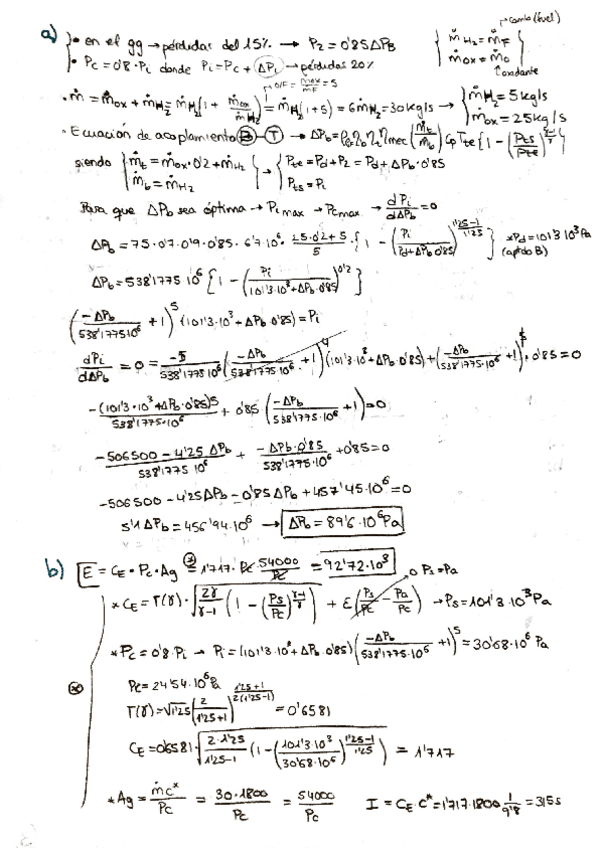 a) • en el gg → pérdidas del 15% → P2 = 0'85ΔPB
• Pc = 0'8·Pi donde Pi = Pc + ΔPi → pérdidas 20%
ṁH2 = ṁF → comb (fuel)
ṁox = ṁO
oxidante
O/F = ṁox/ṁF = 5
• ṁ = ṁox + ṁH2 = ṁH2(1 + ṁox/ṁH2) = ṁH2(1+5) = 6ṁH2 = 30kg/s → { ṁH2 = 5kg/s
ṁox = 25kg/s
• Ecuación de acoplamiento B–T → ΔPb = ρb ηb ηt ηmec (ṁt/ṁb) Cp Tte {1 - (Pts/Pte)^(γ-1/γ)}
siendo { ṁt = ṁox·0'2 + ṁH2
ṁb = ṁH2 } → { Pte = Pd + P2 = Pd + ΔPb·0'85
Pts = Pi
Para que ΔPb sea óptima → Pi max → Pc max → dPi/dΔPb = 0
ΔPb = 75·0'7·0'9·0'85·6'7·10⁶ · (25·0'2+5)/5 · {1 - (Pi/(Pd+ΔPb 0'85))^(1'25-1/1'25)} *Pd = 101'3 10³Pa
(aptdo B)
ΔPb = 538'1775 10⁶ {1 - (Pi/(101'3·10³+ΔPb·0'85))^0'2}
(-ΔPb/538'1775 10⁶ + 1)⁵ (101'3·10³ + ΔPb·0'85) = Pi
dPi/dΔPb = 0 = -5/538'1775·10⁶ (-ΔPb/538'1775·10⁶ + 1)⁴ (101'3·10³ + ΔPb·0'85) + (-ΔPb/538'1775·10⁶ + 1)⁵ · 0'85 = 0
-(101'3·10³ + ΔPb·0'85)5/538'1775·10⁶ + 0'85 (-ΔPb/538'1775·10⁶ + 1) = 0
-506500 - 4'25 ΔPb/538'1775 10⁶ + -ΔPb·0'85/538'1775·10⁶ + 0'85 = 0
-506500 - 4'25ΔPb - 0'85ΔPb + 457'45·10⁶ = 0
5'1 ΔPb = 456'94·10⁶ → ΔPb = 89'6·10⁶Pa
b) E = CE·Pc·Ag = 1'717·Pc 54000/Pc = 92'72·10³
* CE = Γ(γ)·√(2γ/γ-1 (1 - (Ps/Pc)^(γ-1/γ))) + ε(Ps/Pc - Pa/Pc) → 0 Ps = Pa → Ps = 101'3·10³Pa
* Pc = 0'8·Pi → Pi = (101'3·10³ + ΔPb·0'85)(-ΔPb/538'1775·10⁶ + 1)⁵ = 30'68·10⁶ Pa
Pc = 24'54·10⁶Pa
Γ(γ) = √1'25 (2/1'25+1)^(1'25+1/2(1'25-1)) = 0'6581
CE = 0'6581·√(2·1'25/1'25-1 (1 - (101'3 10³/30'68·10⁶)^(1'25-1/1'25))) = 1'717
* Ag = ṁc*/Pc = 30·1800/Pc = 54000/Pc I = CE·C* = 1'717·1800·1/9'8 = 315s